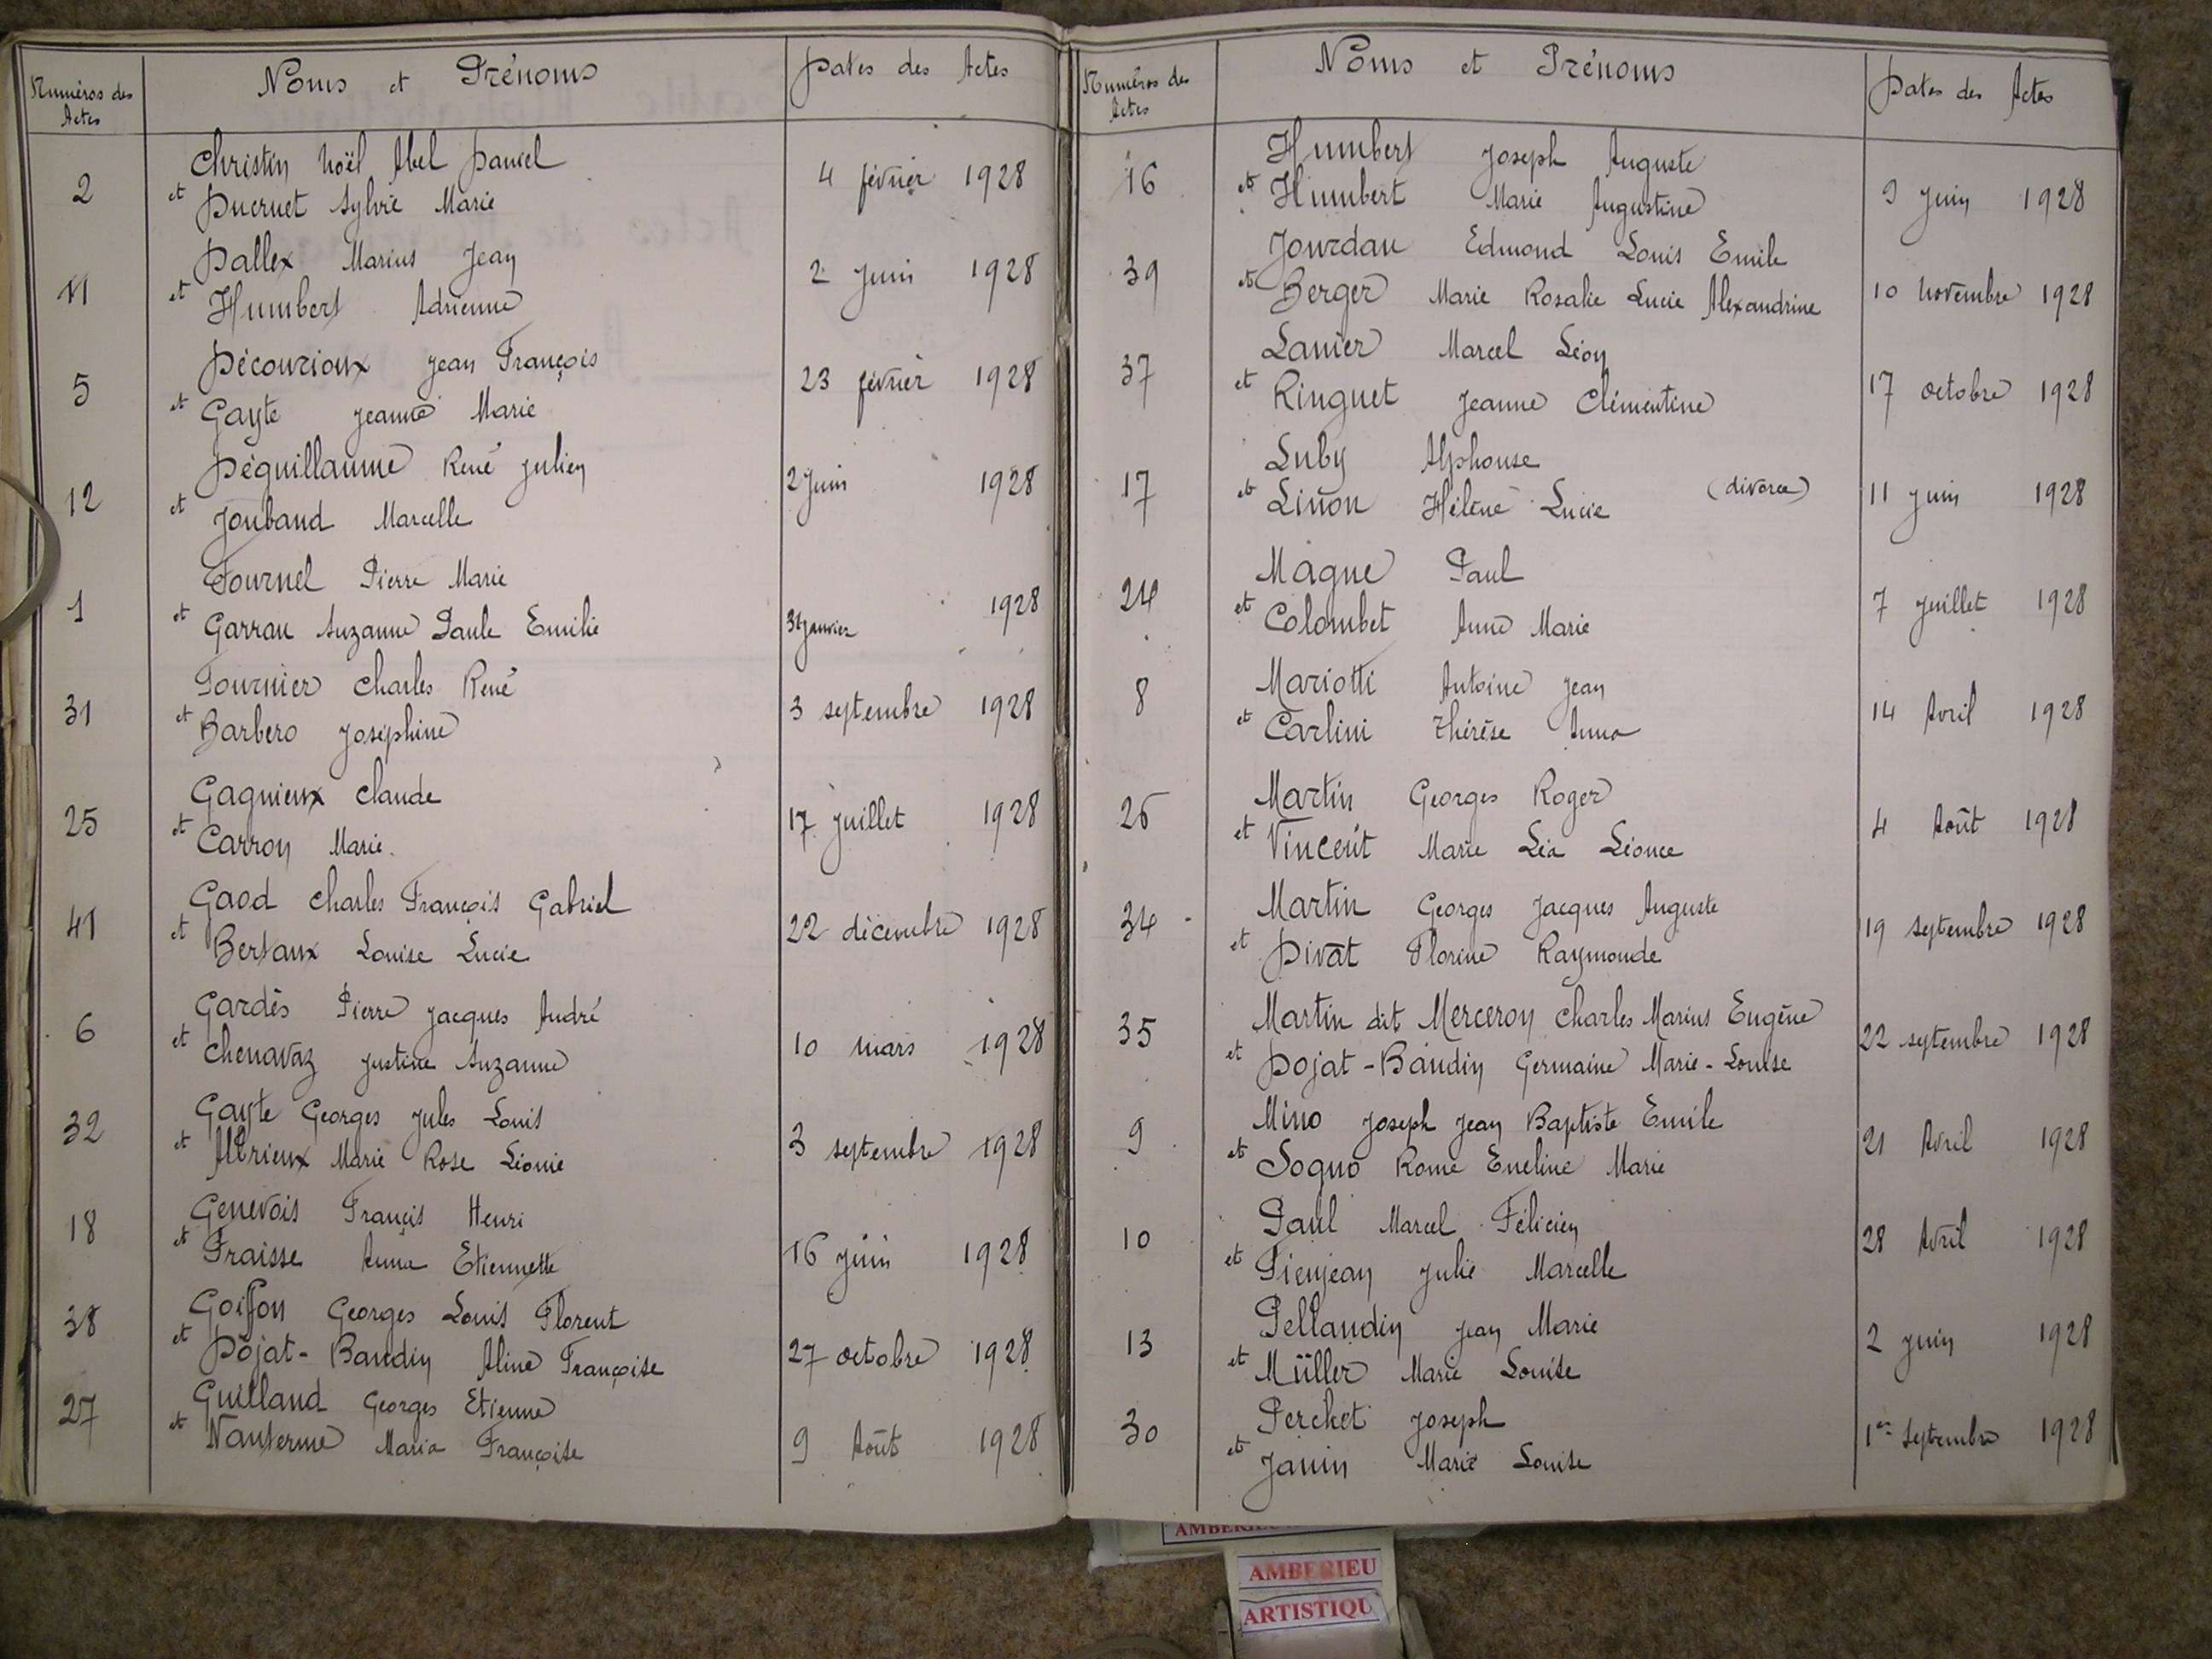 Numéros des Actes
Noms et Prénoms
Dates des Actes
2
Christin Noël Abel Daniel
et Ducruet Sylvie Marie
4 février 1928
11
Dallex Marius Jean
et Humbert Adrienne
2 Juin 1928
5
Décourioux Jean François
et Gayte Jeanne Marie
23 février 1928
12
Déguillaume René Julien
et Joubaud Marcelle
2 Juin 1928
1
Fournel Pierre Marie
et Garrau Suzanne Paule Emilie
31 janvier 1928
31
Fournier Charles René
et Barbero Joséphine
3 septembre 1928
25
Gagnieux Claude
et Carron Marie.
17 juillet 1928
41
Gaod Charles François Gabriel
et Bertaux Louise Lucie
22 décembre 1928
6
Gardès Pierre Jacques André
et Chenavaz Justine Suzanne
10 mars 1928
32
Gayte Georges Jules Louis
et Marie Rose Léonie
3 septembre 1928
18
Genevois Françis Henri
et Fraisse Anna Etiennette
16 juin 1928
38
Goiffon Georges Louis Florent
et Dojat-Baudin Aline Françoise
27 octobre 1928
27
Guilland Georges Etienne
et Nanterme Maria Françoise
9 Août 1928
Numéros des Actes
Noms et Prénoms
Dates des Actes
16
Humbert Joseph Auguste
et Humbert Marie Augustine
9 Juin 1928
39
Jourdan Edmond Louis Emile
et Berger Marie Rosalie Lucie Alexandrine
10 Novembre 1928
37
Lanier Marcel Léon
et Ringuet Jeanne Clémentine
17 octobre 1928
17
Luby Alphonse
et Linon Hélène Lucie (divorce)
11 juin 1928
24
Magne Paul
et Colombet Anne Marie
7 juillet 1928
8
Mariotti Antoine Jean
et Carlini Thérèse Anna
14 Avril 1928
26
Martin Georges Roger
et Vincent Marie Léa Léonce
4 Août 1928
34
Martin Georges Jacques Auguste
et Divat Florine Raymonde
19 septembre 1928
35
Martin dit Merceron Charles Marius Eugène
et Dojat-Baudin Germaine Marie-Louise
22 septembre 1928
9
Mino Joseph Jean Baptiste Emile
et Sogno Rome Eveline Marie
21 Avril 1928
10
Paul Marcel Félicien
et Pienjean Julie Marcelle
28 Avril 1928
13
Pellaudin Jean Marie
et Müller Marie Louise
2 juin 1928
30
Perchet Joseph
et Janin Marie Louise
1er Septembre 1928
AMBERIEU
ARTISTIQU